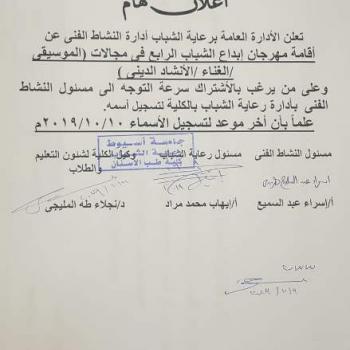 اعلان هام
تعلن الأدارة العامة برعاية الشباب أدارة النشاط الفنى عن
أقامة مهرجان إبداع الشباب الرابع في مجالات (الموسيقى
/الغناء /الأنشاد الدينى )
وعلى من يرغب بالأشتراك سرعة التوجه الى مسئول النشاط
الفنى بأدارة رعاية الشباب بالكلية لتسجيل أسمه.
علماً بأن أخر موعد لتسجيل الأسماء ٢٠١٩/١٠/١٠م
جامعة أسيوط
مسئول النشاط الفنى مسئول رعاية الشباب وكيل الكلية لشئون التعليم
والطلاب
كلية طب الأسنان
أ/إسراء عبد السميع أ/إيهاب محمد مراد د/نجلاء طه المليجى